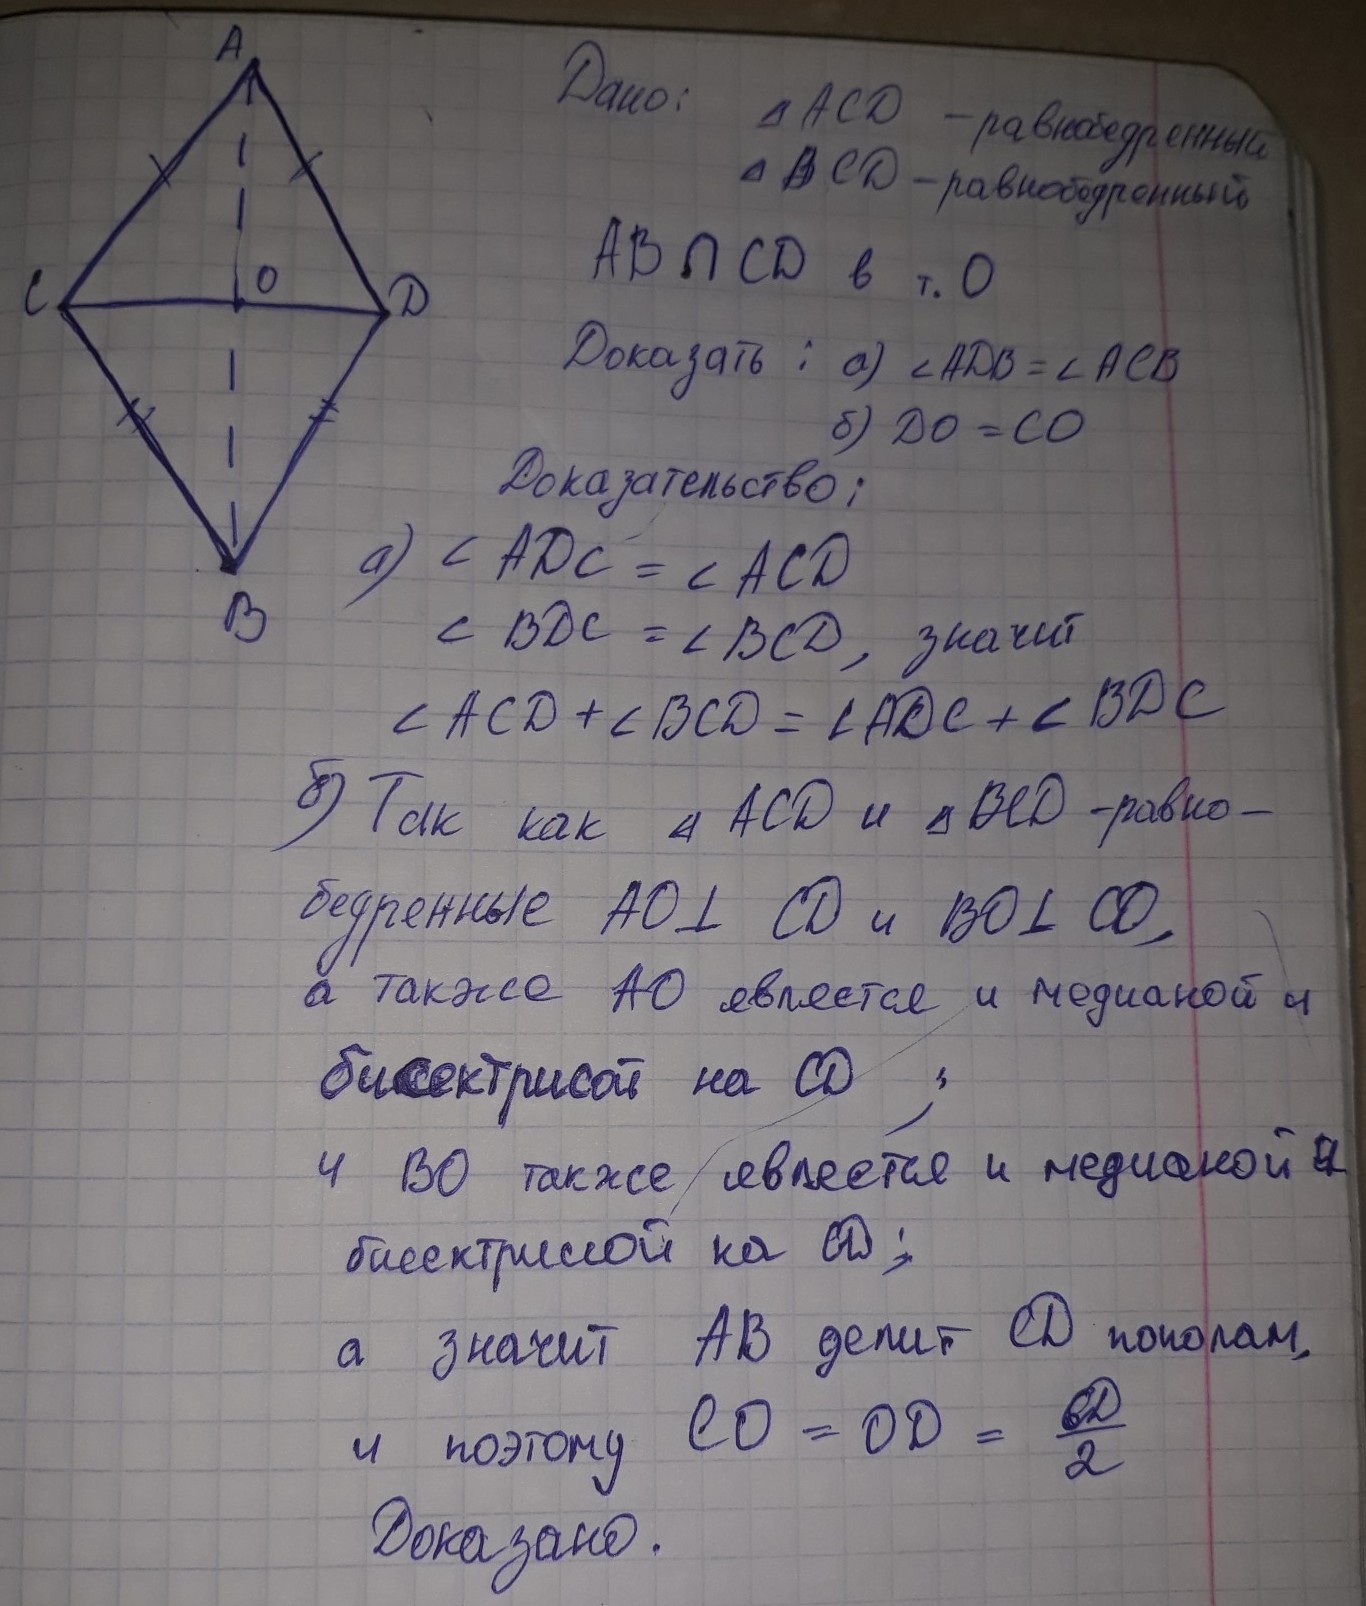 A
C
O
D
B
Дано: △ACD – равнобедренный
△BCD – равнобедренный
AB ∩ CD в т. O
Доказать: а) ∠ADB = ∠ACB
б) DO = CO
Доказательство:
а) ∠ADC = ∠ACD
∠BDC = ∠BCD, значит
∠ACD + ∠BCD = ∠ADC + ∠BDC
б) Так как △ACD и △BCD - равно-
бедренные AO⊥ CD и BO⊥ CD,
а также AO является и медианой и
биссектрисой на CD ;
и BO также является и медианой и
биссектрисой на CD;
а значит AB делит CD пополам,
и поэтому CO = OD = CD/2
Доказано.